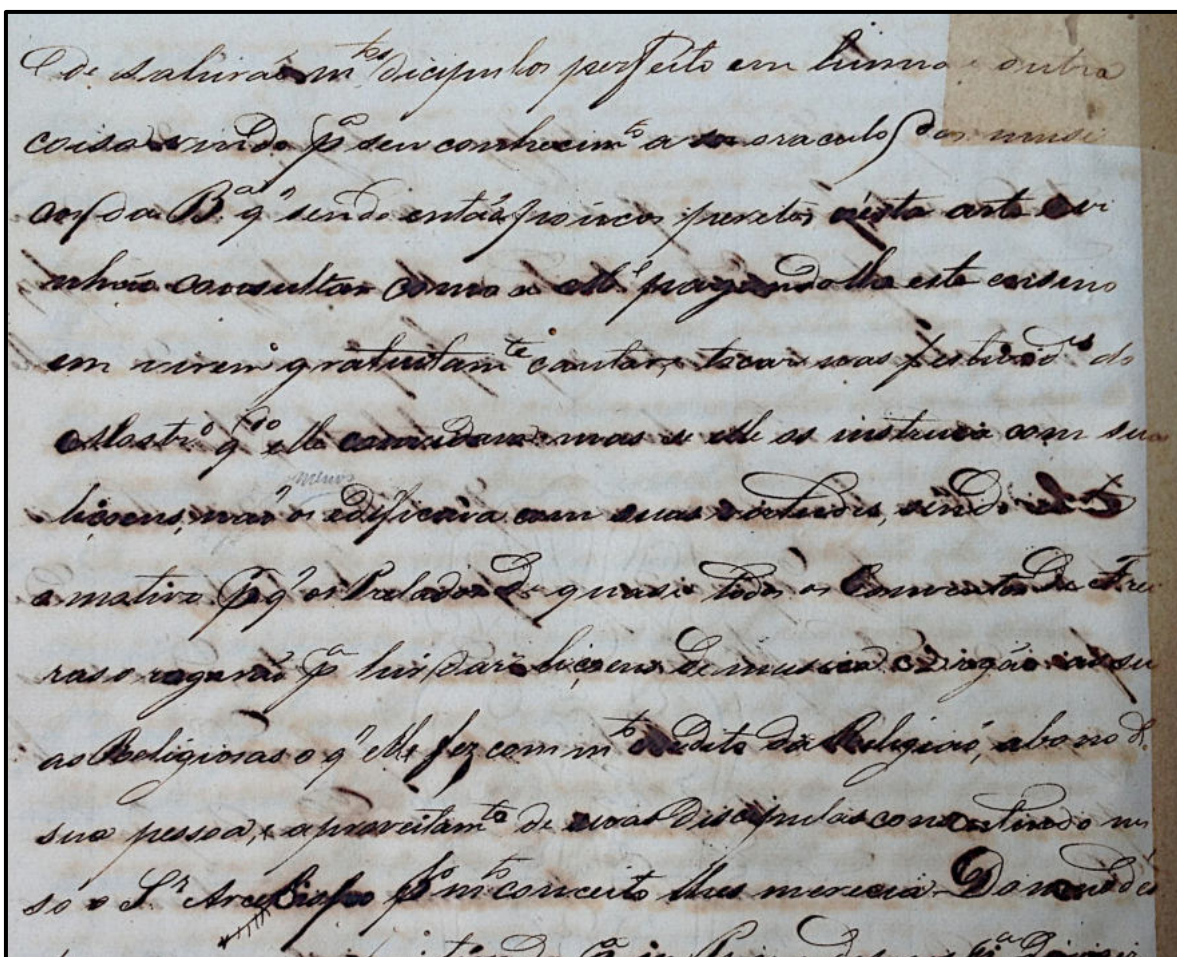 de sahirão m.tos dicipulos perfeito em huma e outra
coisa vindo p.a seu conhecim.to a ser oraculo dos musi
cos da B.a q' sendo então poucos peretos nesta arte o vi
nhão consultar como a mel pagandolhe este ensino
em virem gratuitam.te cantar, e tocar suas festivid.es do
Mostr.o q.do elle convidava mas se elle os instruia com suas
liçoens, não menos os edificava com suas virtudes, sendo este
o motivo p.r q' os Prelados de quasi todos os Conventos de Frei
ras o rogarão p.a lhis dar liçoens de musica e orgão as su
as Religiosas o q' elle fez com m.to credito da Religião, abono de
sua pessoa, e aproveitam.to de suas Discipulas consentindo nis
so o S.r Arcebispo p.lo m.to conceito lhes merecia Do mudes